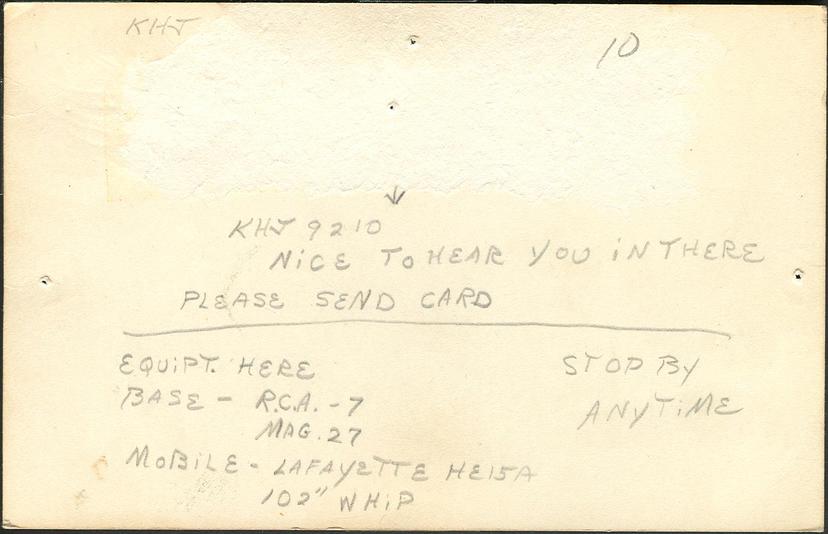 KHJ
10
KHJ 9210
NiCE TO HEAR YOU iN THERE
PLEASE SEND CARD
EQUiPT. HERE
STOP By
BASE - R.C.A. -7
ANyTiME
MAG. 27
MOBiLE - LAFAYETTE HE15A
102" WHiP